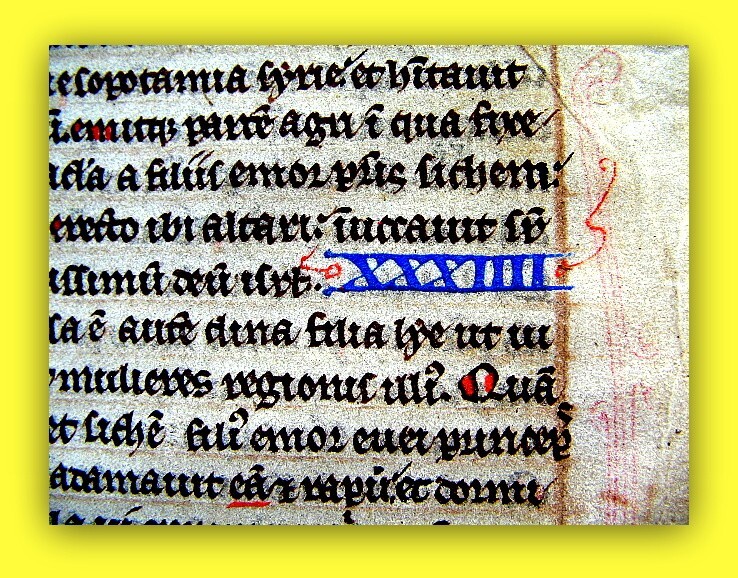 esopotamia syrie et hītauit
emitq; partē agri ī qua fixe
a filiis emor pr̄is sichem.
erecto ibi altari: īuocauit sr̄
issimū deū isrl̄. XXXIIII
sa ē autē dina filia lye ut ui
mulieres regionis illiꝰ. Quā
et sichē filiꝰ emor euei princeps
adamauit eā ⁊ rapuit et dormi